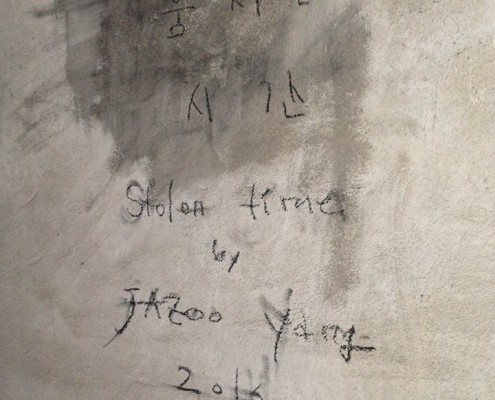 시간
Stolen time
by
JAZOO Yang